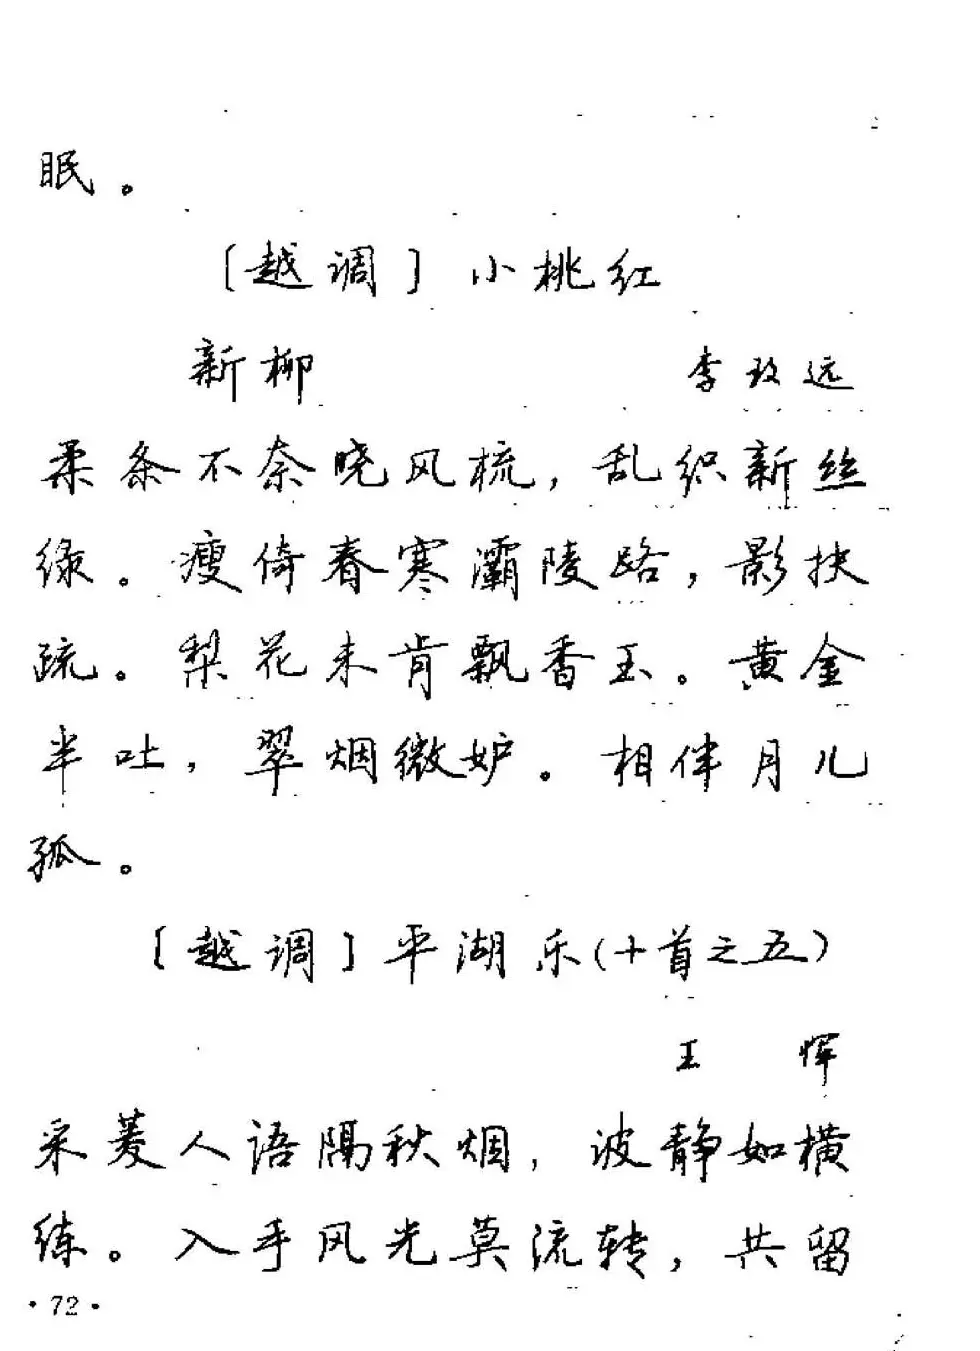 眠。
〔越调〕小桃红
新柳 李致远
柔条不奈晓风梳，乱织新丝
绿。瘦倚春寒灞陵路，影扶
疏。梨花未肯飘香玉。黄金
半吐，翠烟微妒。相伴月儿
孤。
〔越调〕平湖乐(十首之五)
王 恽
采菱人语隔秋烟，波静如横
练。入手风光莫流转，共留
·72·